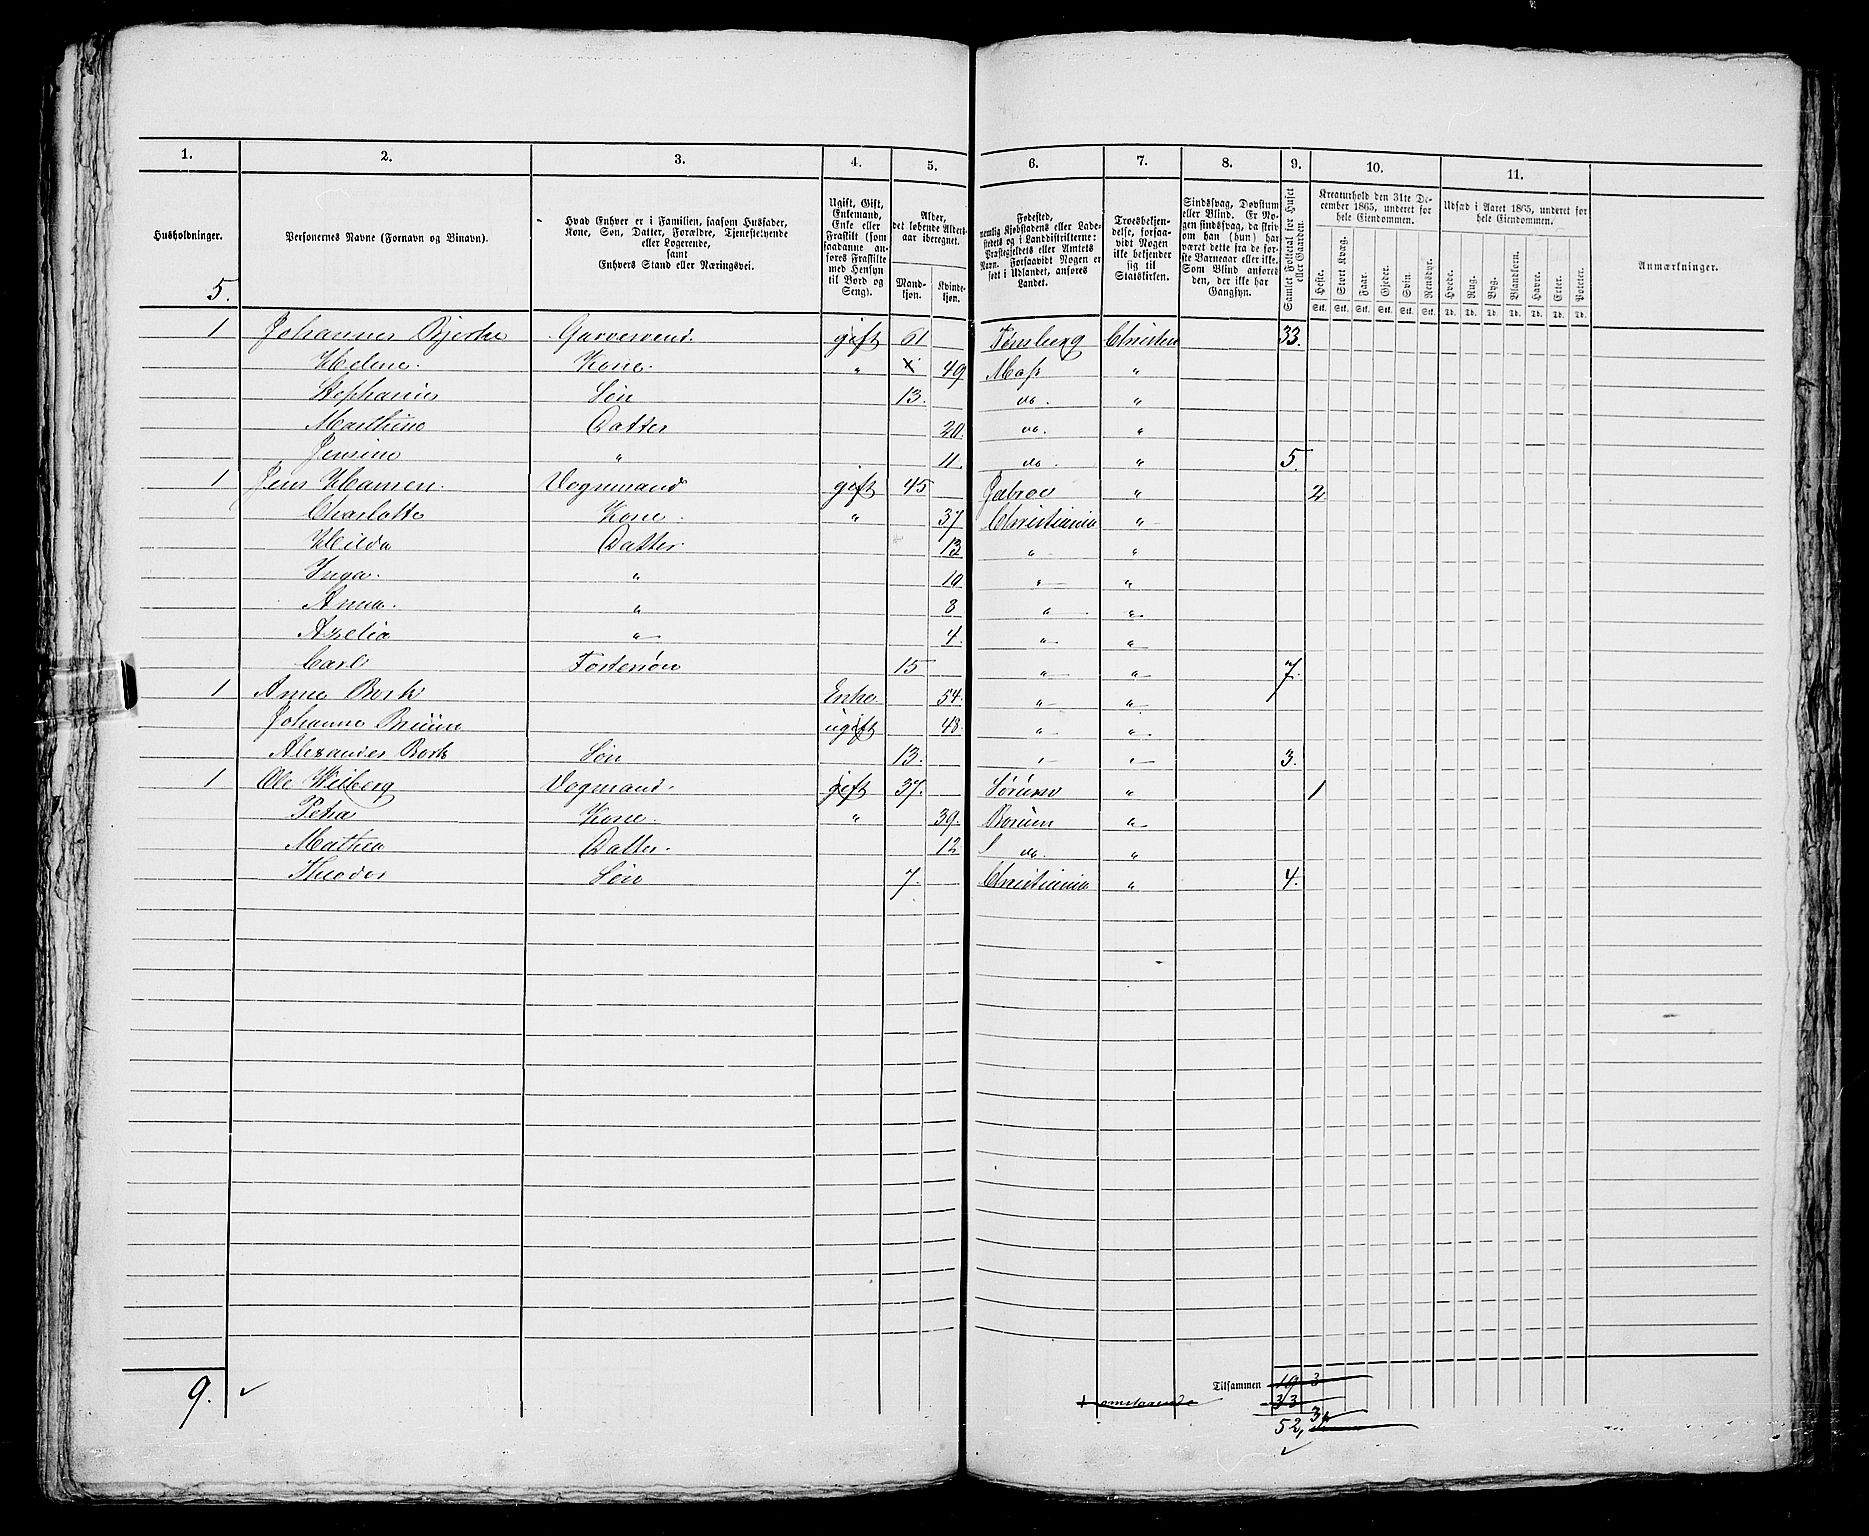 1. 2. 3. 4. 5. 6. 7. 8. 9. 10. 11.
Husholdninger.
Personernes Navne (Fornavn og Binavn).
Hvad Enhver er i Familien, saasom Husfader,
Kone, Søn, Datter, Forældre, Tjenestetyende
eller Logerende,
samt
Enhvers Stand eller Næringsvei.
Ugift, Gift,
Enkemand,
Enke eller
Fraskilt (som
saadanne an-
føres Fraskilte
med Hensyn
til Bord og
Seng).
Alder,
det løbende Alders-
aar iberegnet.
Mand-
kjøn.
Kvinde-
kjøn.
Fødested,
nemlig Kjøbstadens eller Lade-
stedets og i Landdistrikterne:
Præstegjeldets eller Amtets
Navn. Forsaavidt Nogen er
født i Udlandet, anføres
Landet.
Troesbekjen-
delse, forsaa-
vidt Nogen
ikke bekjender
sig til
Statskirken.
Sindssvag, Døvstum
eller Blind. Er No-
gen sindssvag, da skriv
om han (hun) har
været dette fra de før-
ste Barneaar eller ikke.
Som Blind anføres
den, der ikke har
Gangsyn.
Samlet Folketal for Huset
eller Gaarden.
Kreaturhold den 31te De-
cember 1865, underet for
hele Eiendommen.
Heste. Stort Kvæg. Faar. Gjeder. Svin. Rensdyr.
Stk. Stk. Stk. Stk. Stk. Stk.
Udsæd i Aaret 1865, underet for
hele Eiendommen.
Hvede. Rug. Byg. Blandkorn. Havre. Erter. Poteter.
Td. Td. Td. Td. Td. Td. Td.
Anmærkninger.
5.
1 Johannes Bjerke Garversvend. gift 61 Tønsberg Christen 33.
Helene. Kone. " 49 Moss "
Stephanius Søn 13. do. "
Marthine Datter 20. do. "
Jensine " 11. do. " 5.
1 Jens Hansen. Vognmand gift 45 " 2
Charlotte Kone. " 37 Christiania "
Hilda Datter. 13 " "
Inga. " 10 " "
Anna. " 8 " "
Azelia " 4. " "
Carl Fostersøn 15 " " 7.
1 Anna Bork Enke 54. " "
Johanne Bruun ugift 48. " "
Alexander Bork Søn 13. " " 3.
1 Ole Wiiberg Vogmand. gift 37. Sørum " 1
Petra Kone. " 39. "
Mathea Datter. 12 do. "
Theodor Søn 7. Christiania " 4.
9. ✓
Tilsammen 19 3
omstaaende 33
52,
✓